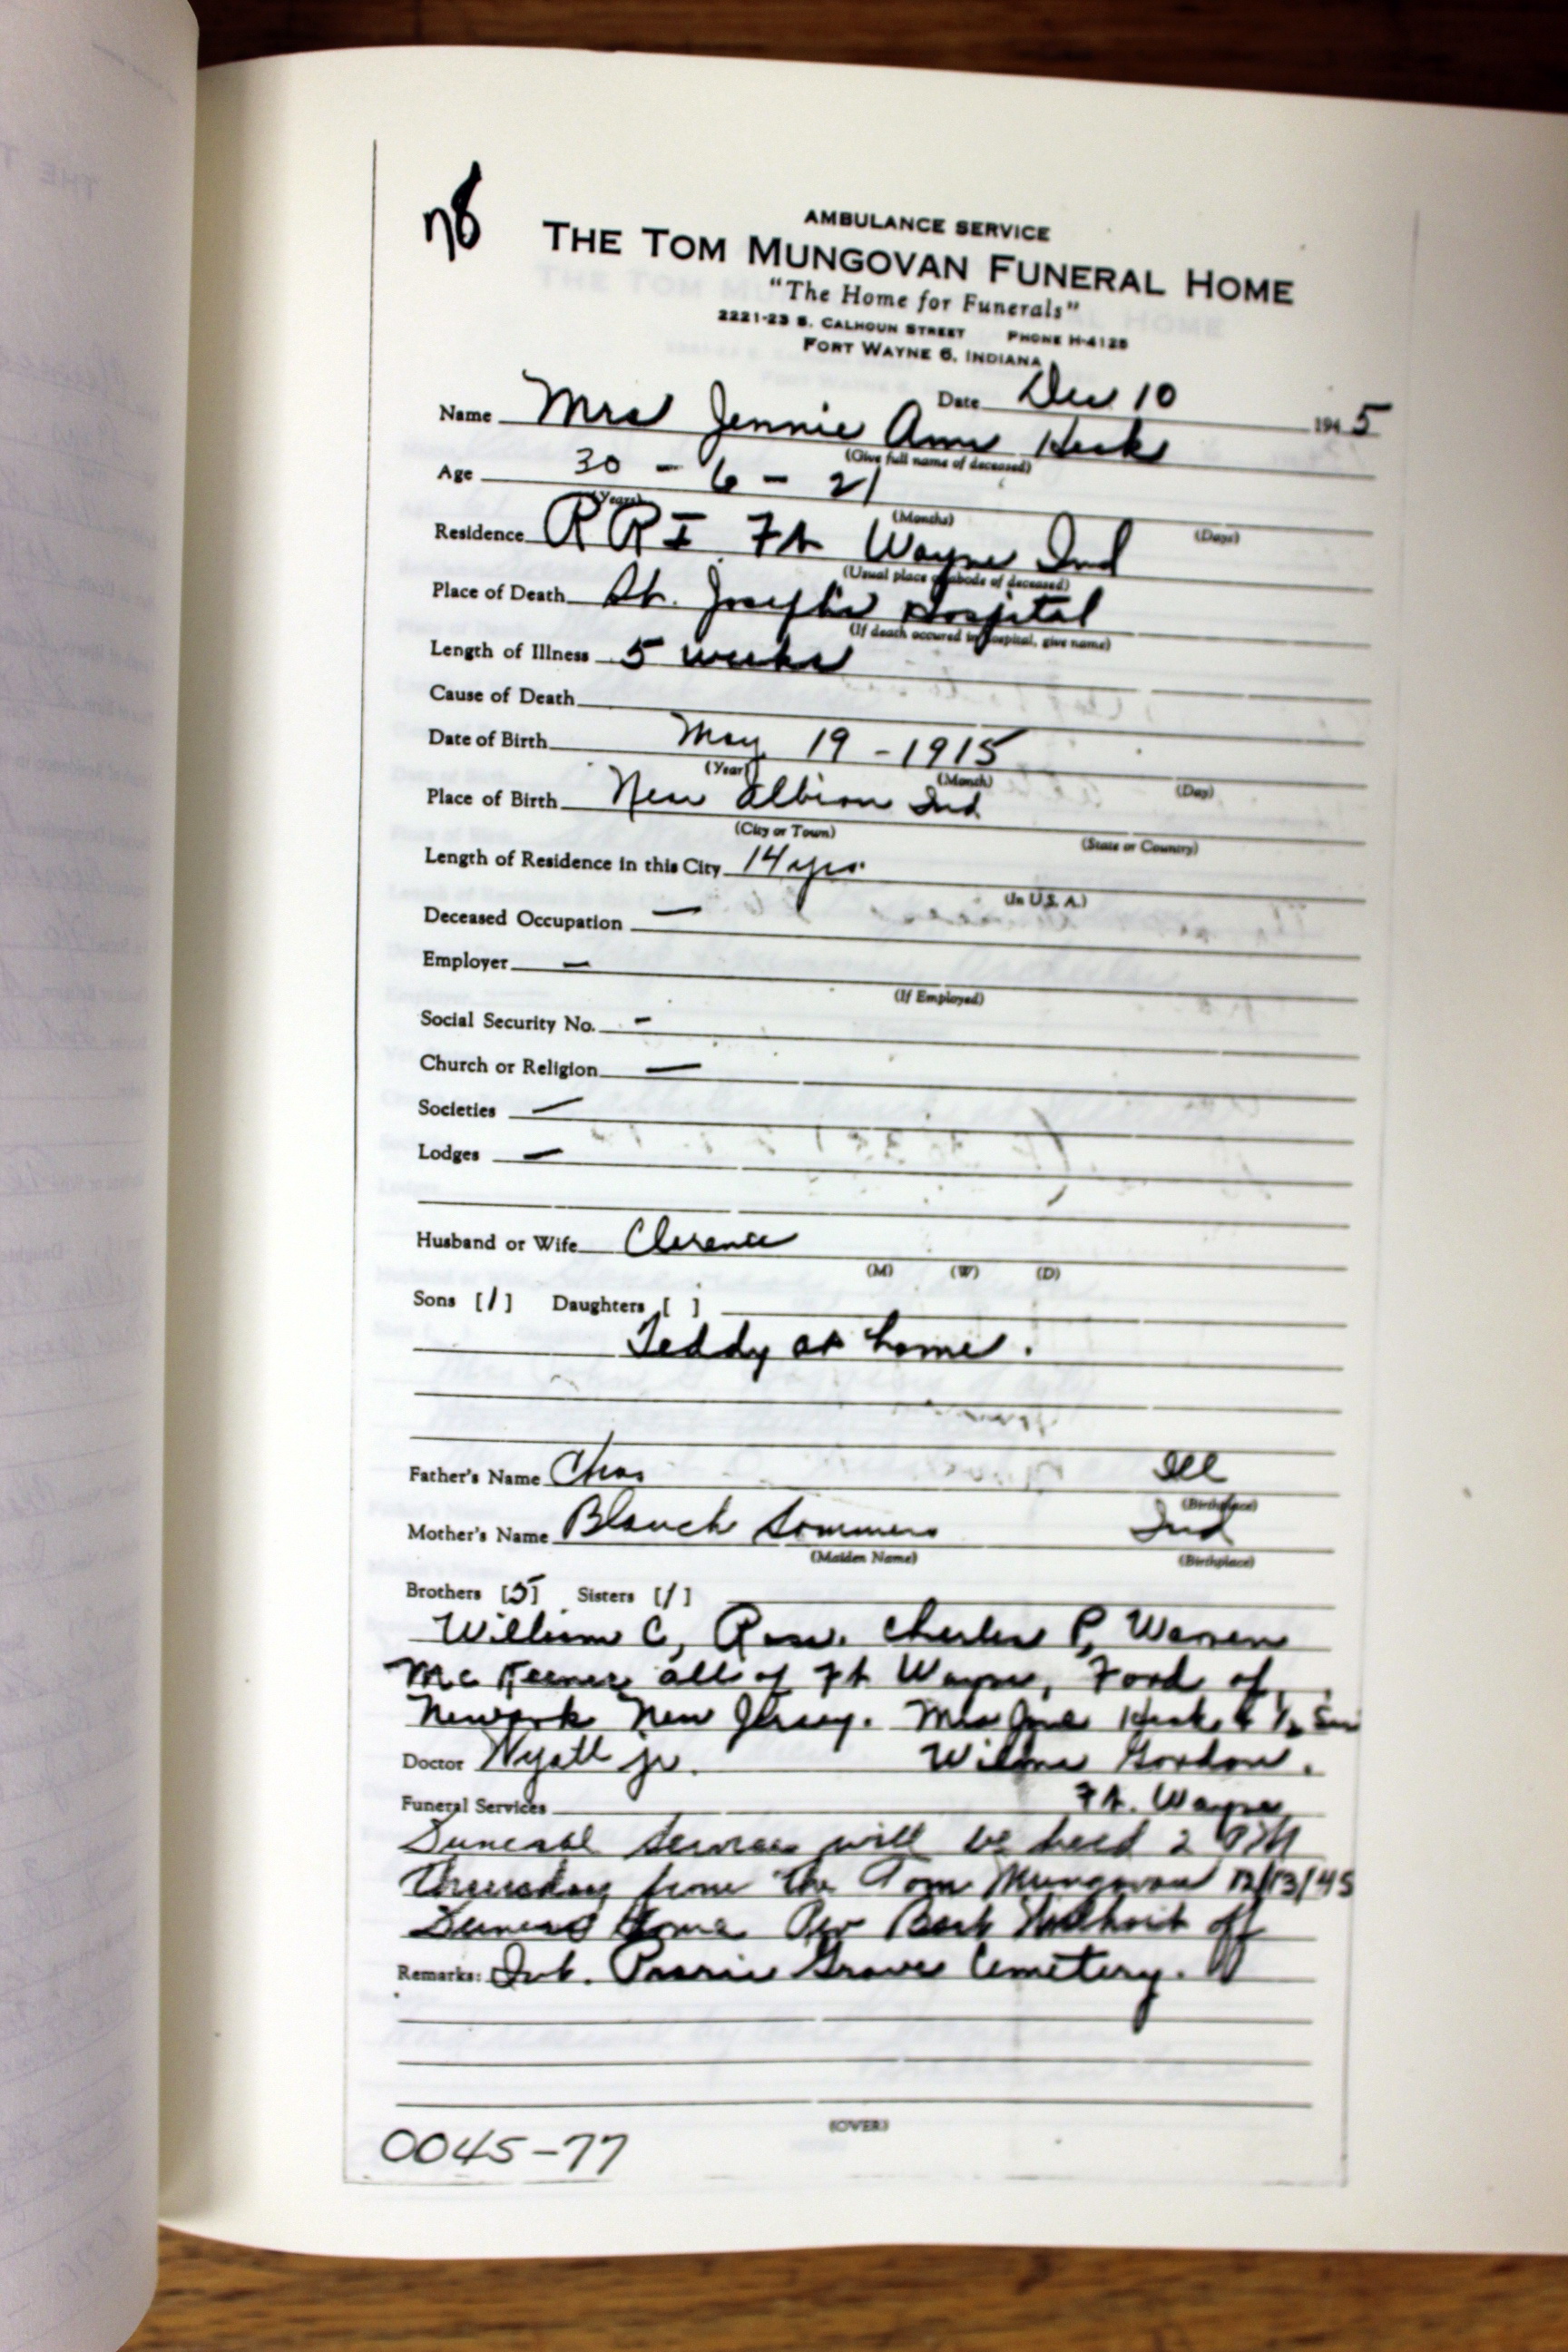 AMBULANCE SERVICE
THE TOM MUNGOVAN FUNERAL HOME
"The Home for Funerals"
2221-23 S. CALHOUN STREET PHONE H-4128
FORT WAYNE 6, INDIANA
Date Dec 10 1945
Name Mrs Jennie Ann Heck
(Give full name of deceased)
Age 30 - 6 - 21
(Years) (Months) (Days)
Residence R R I Ft Wayne Ind
(Usual place of abode of deceased)
Place of Death St. Joseph's Hospital
(If death occured in hospital, give name)
Length of Illness 5 weeks
Cause of Death
Date of Birth May 19 - 1915
(Year) (Month) (Day)
Place of Birth New Albion Ind
(City or Town) (State or Country)
Length of Residence in this City 14 yrs.
(In U.S.A.)
Deceased Occupation —
Employer —
(If Employed)
Social Security No. -
Church or Religion —
Societies —
Lodges —
Husband or Wife Clarence
(M) (W) (D)
Sons [1] Daughters [ ]
Teddy at home.
Father's Name Chas Ill
(Birthplace)
Mother's Name Blanch Sommers Ind
(Maiden Name) (Birthplace)
Brothers [5] Sisters [1]
William C, Ross. Charles P, Warren
all of Ft Wayne, Ford of
Newark New Jersey. Mrs Heck & 1/2
Doctor Wyatt jr. Wilma Gordon.
Funeral Services Ft. Wayne
Funeral Services will be held 2 PM
Thursday from the Tom Mungovan 12/13/45
Funeral Home Rev off
Remarks: Int. Prairie Grove Cemetery.
(OVER)
0045-77